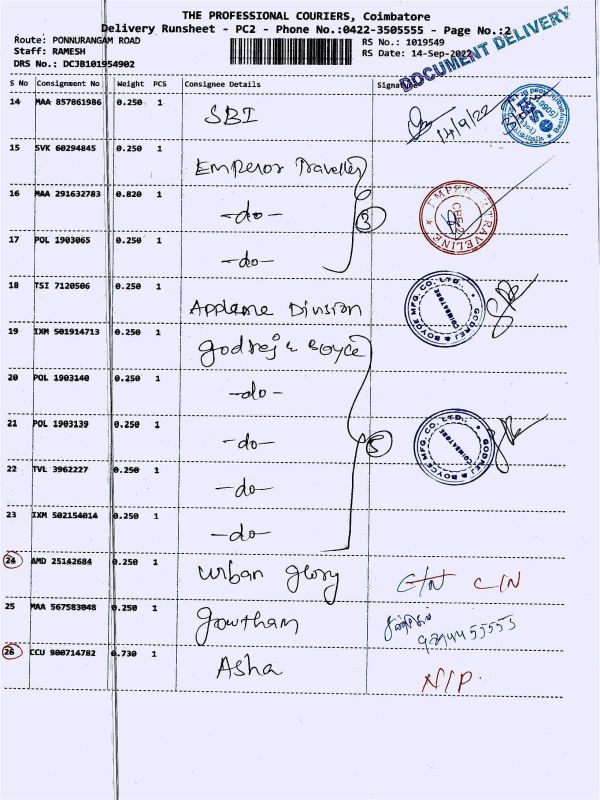 THE PROFESSIONAL COURIERS, Coimbatore
Delivery Runsheet - PC2 - Phone No.:0422-3505555 - Page No.:2
DOCUMENT DELIVERY
Route: PONNURANGAM ROAD
RS No.: 1019549
Staff: RAMESH
RS Date: 14-Sep-2022
DRS No.: DCJB101954902
S No Consignment No Weight PCS Consignee Details Signature
14 MAA 857861986 0.250 1 SBI 14/9/22
15 SVK 60294845 0.250 1 Emperor Traveller
16 MAA 291632783 0.820 1 -do- 3
17 POL 1903065 0.250 1 -do-
18 TSI 7120506 0.250 1 Appliance Division
GODREJ & BOYCE MFG. CO. LTD. COIMBATORE
19 IXM 501914713 0.250 1 Godrej & Boyce
20 POL 1903140 0.250 1 -do-
21 POL 1903139 0.250 1 -do- 5
GODREJ & BOYCE MFG. CO. LTD. COIMBATORE
22 TVL 3962227 0.250 1 -do-
23 IXM 502154014 0.250 1 -do-
24 AMD 25142684 0.250 1 Urban glory C/N C/N
25 MAA 567583048 0.250 1 Gowtham
26 CCU 900714782 0.730 1 Asha N/P.